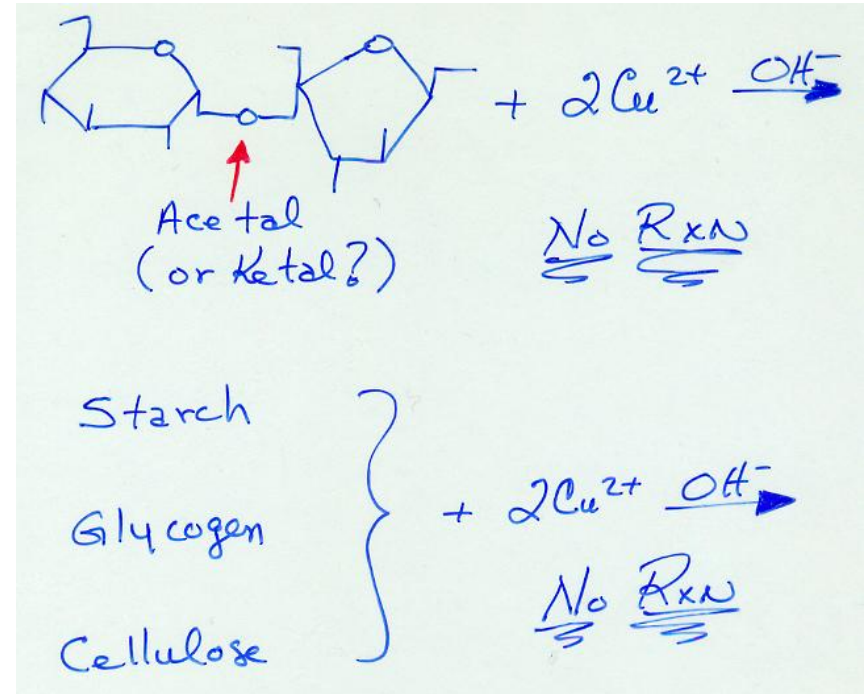 O O
O
+ 2Cu²⁺ OH⁻
Acetal
(or Ketal?)
No RXN
Starch
Glycogen
Cellulose
+ 2Cu²⁺ OH⁻
No RXN